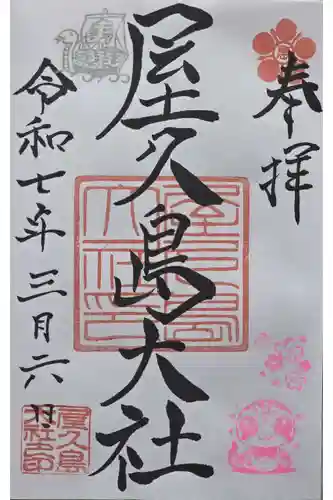 奉拝
屋久島大社
令和七年三月六日
屋久島
大社之印